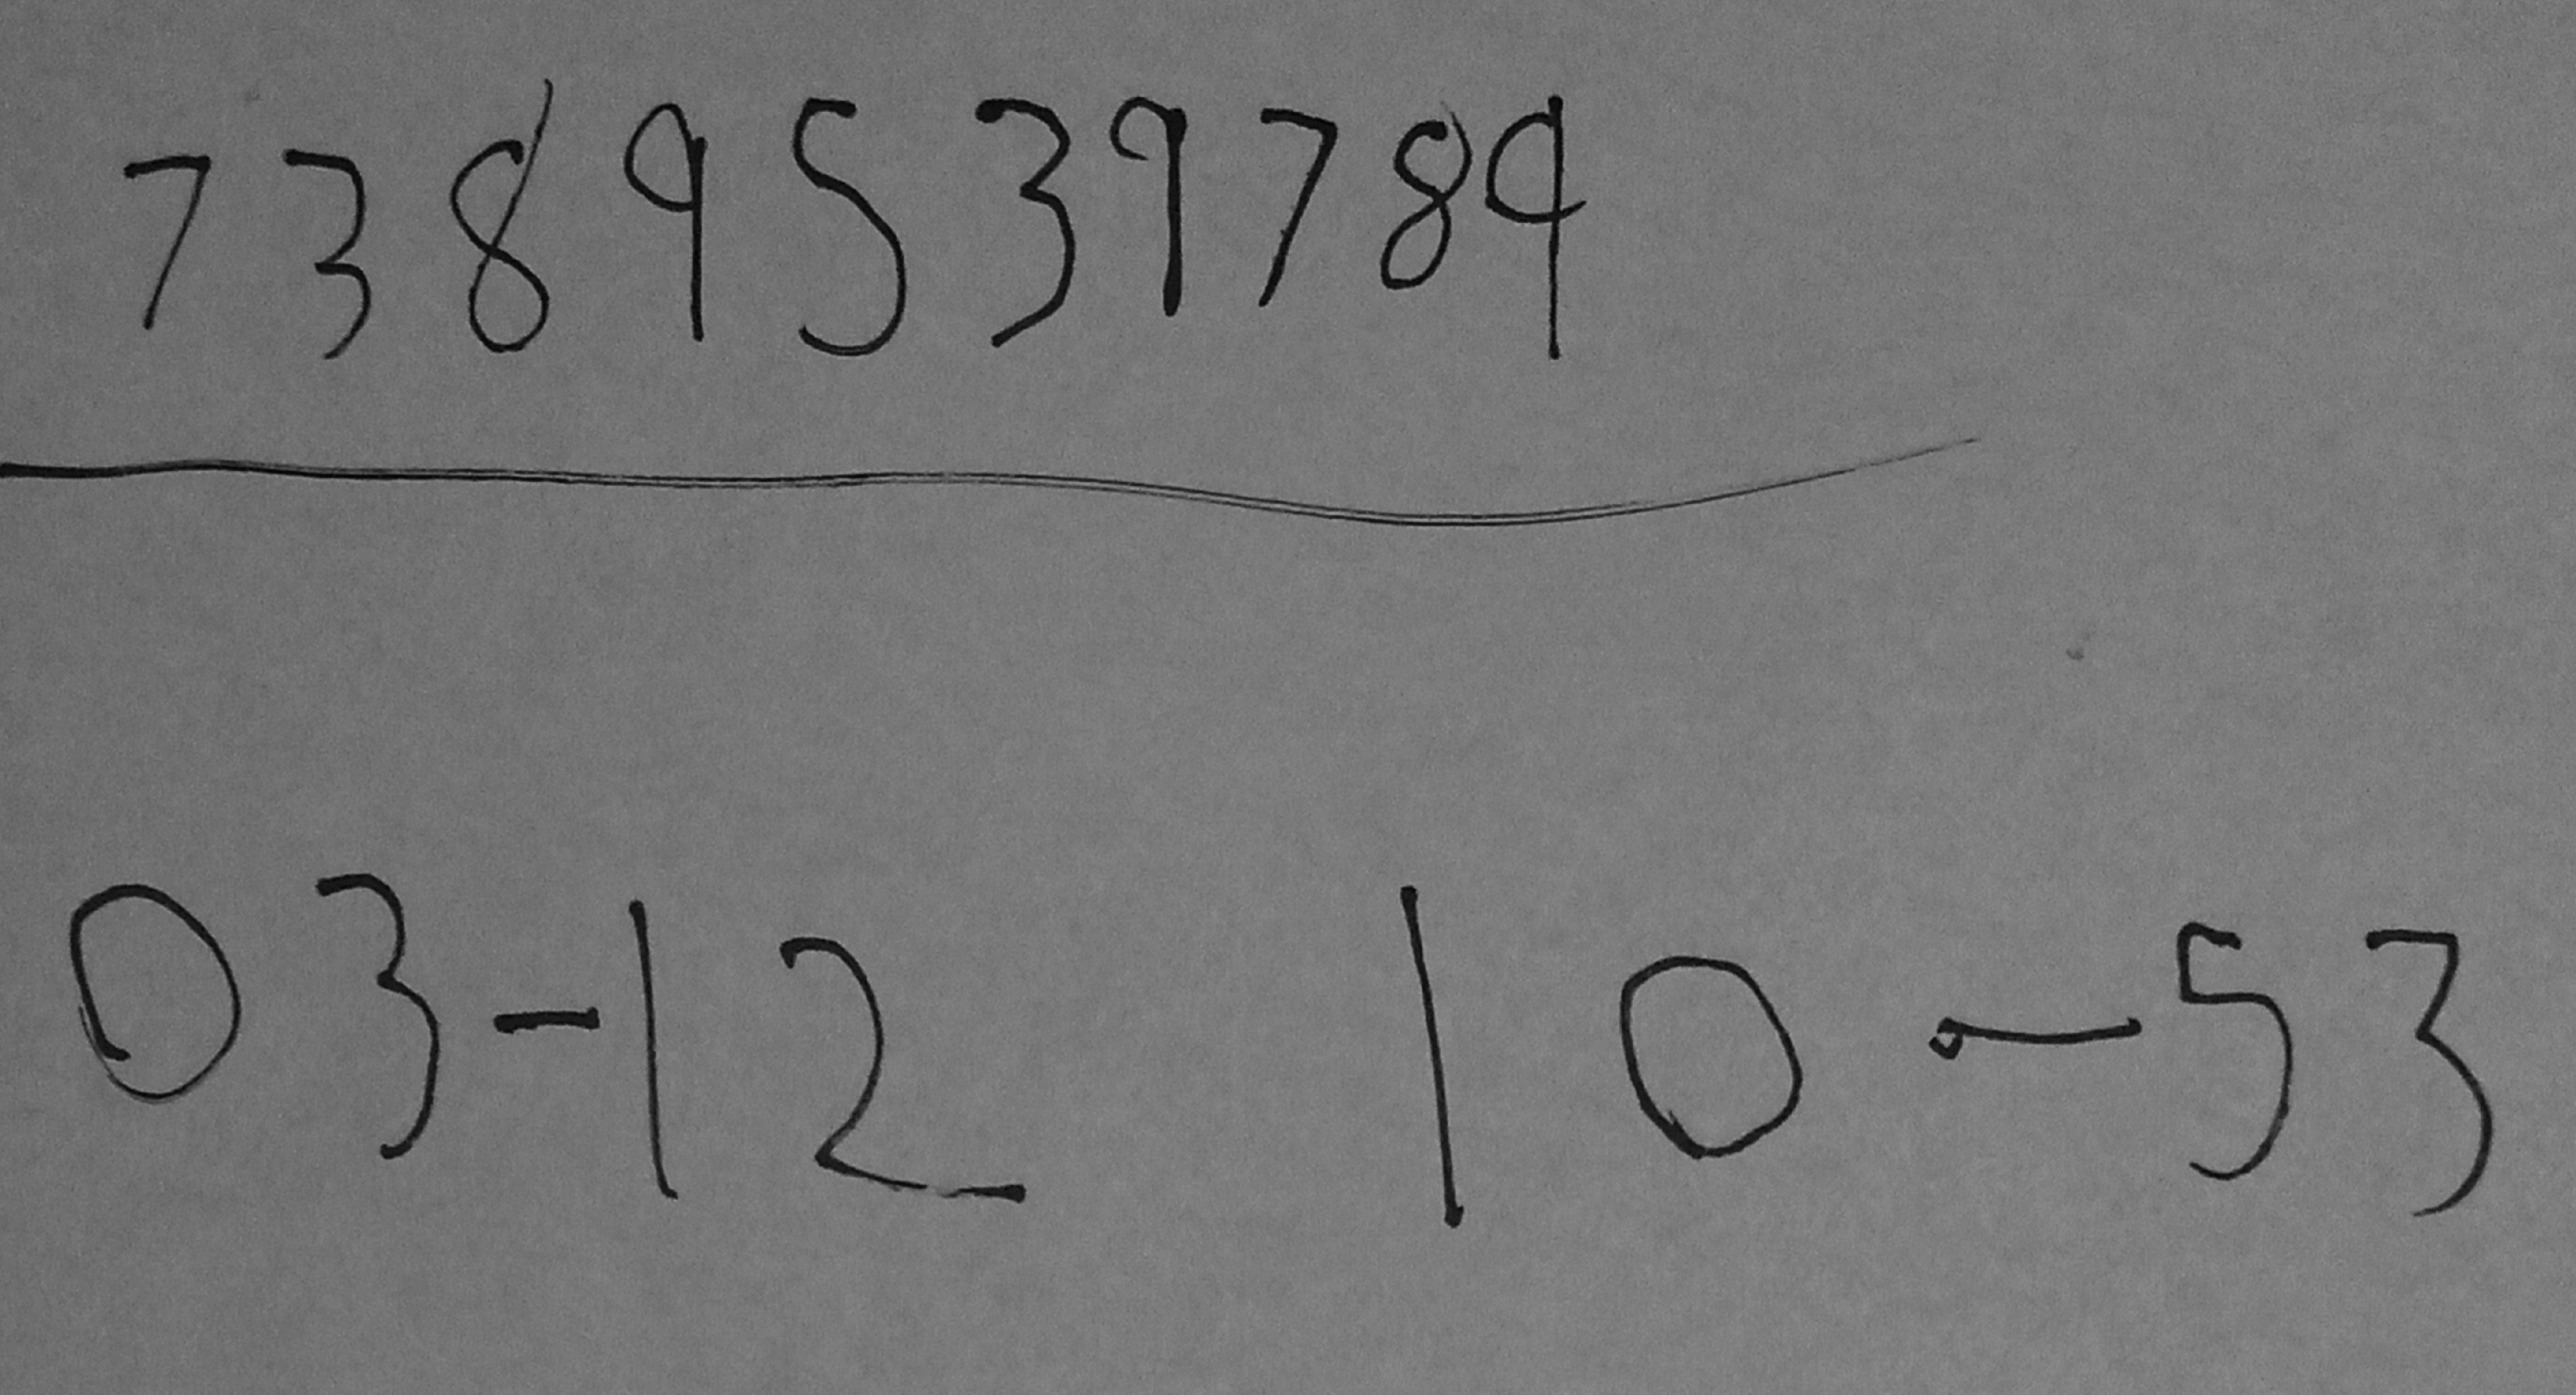 7389539789
03-12 10-53